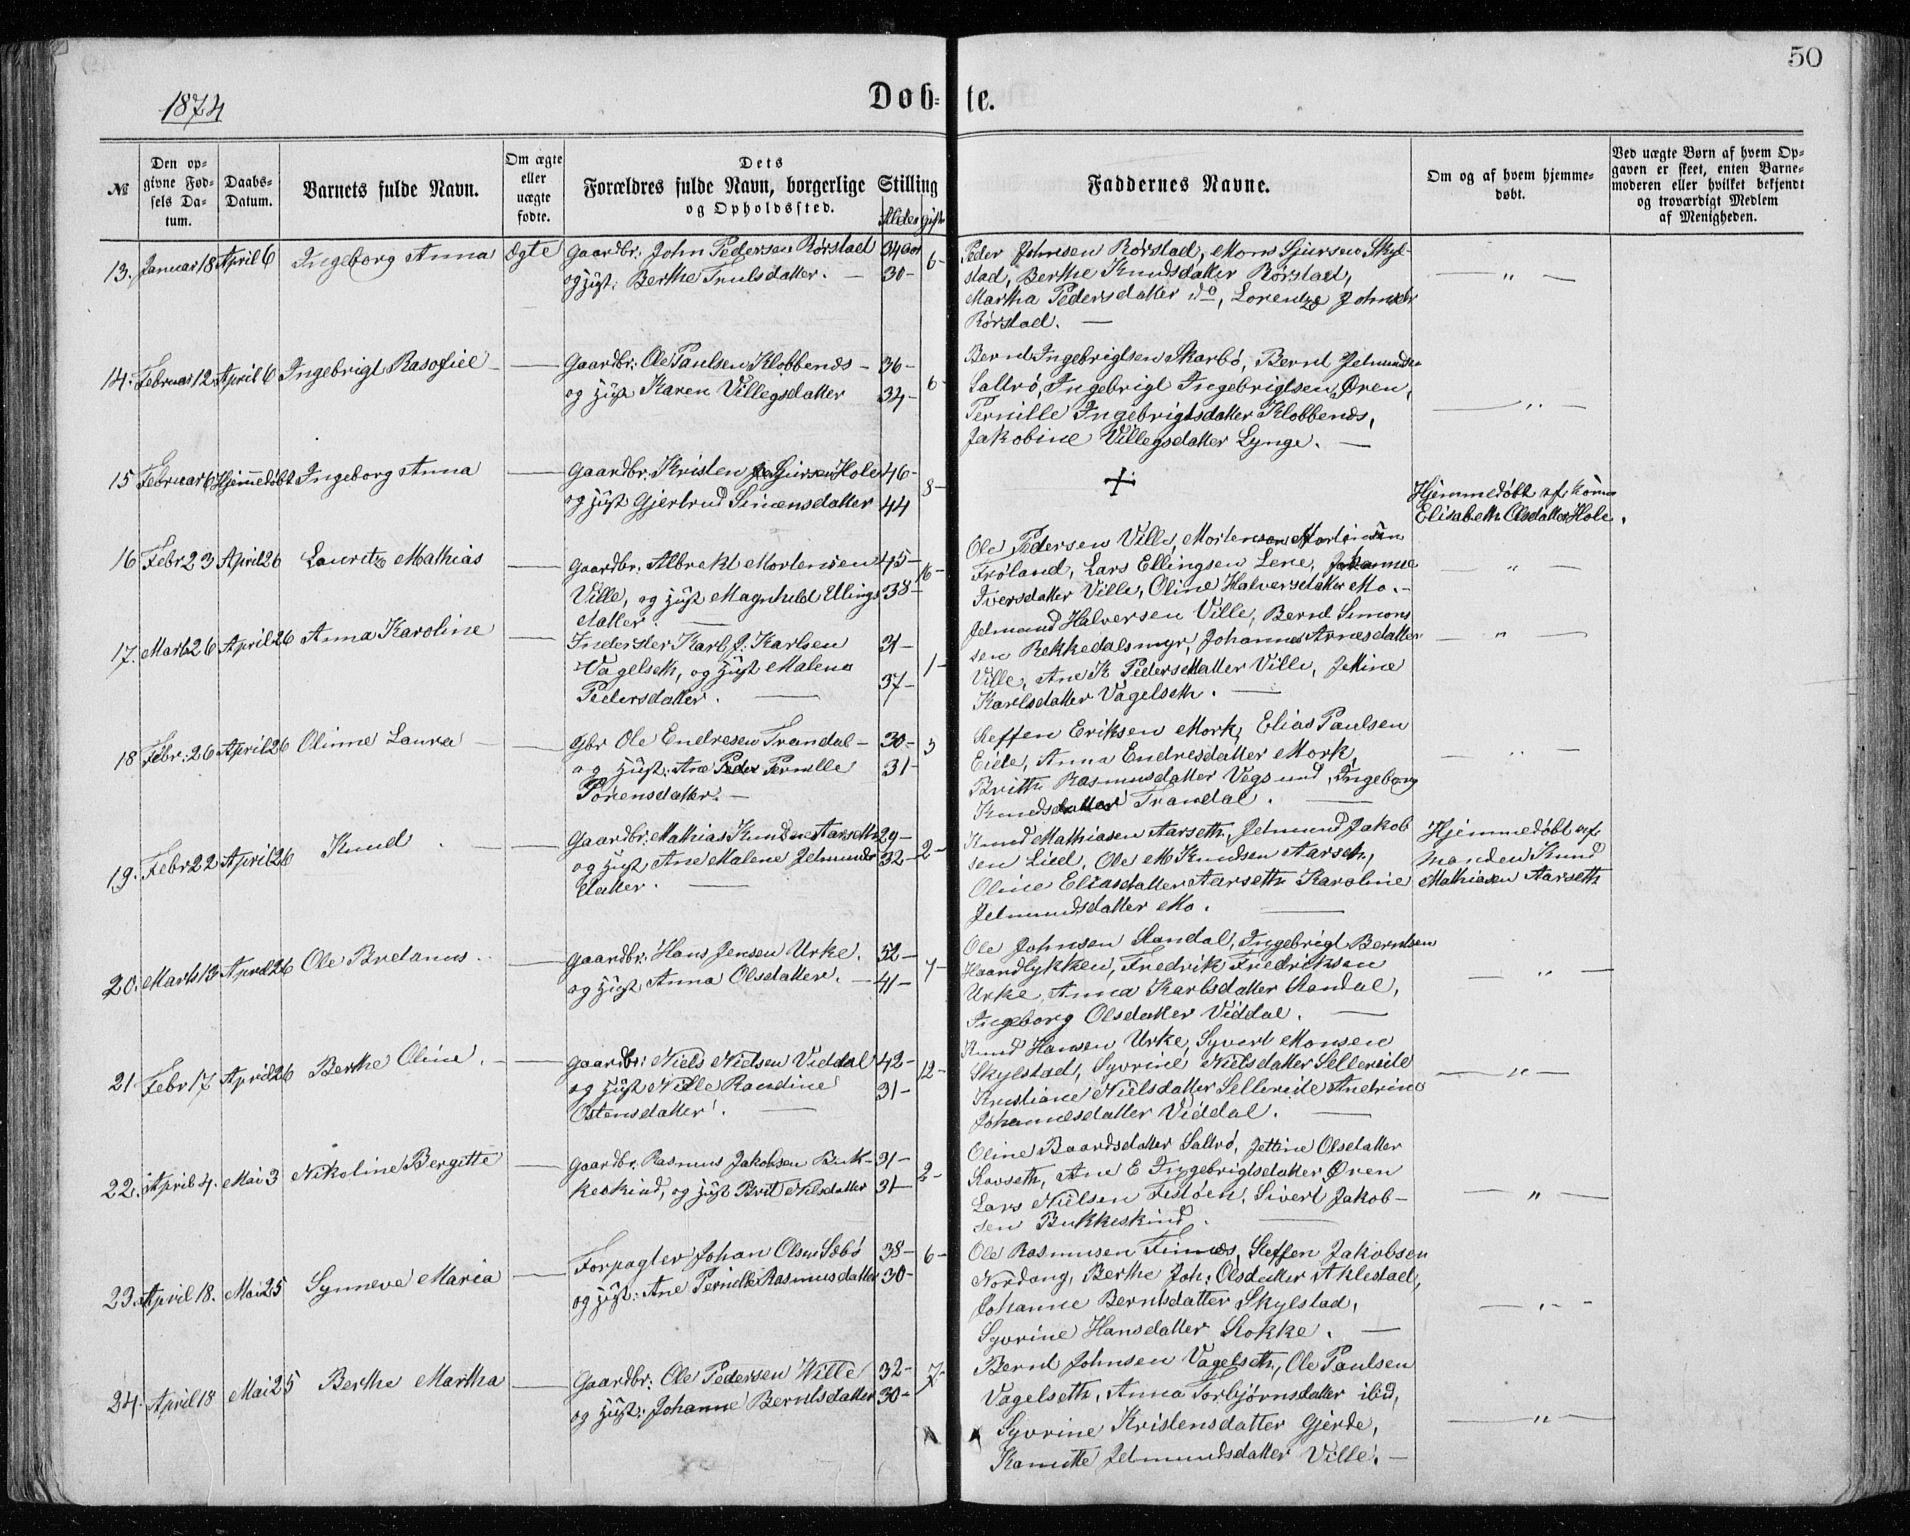 50
1874
Døb- te.
№
Den op-
givne Fød-
sels Da-
tum.
Daabs-
Datum.
Barnets fulde Navn.
Om ægte
eller
uægte
fødte.
Dets
Forældres fulde Navn, borgerlige Stilling
og Opholdssted.
Alder gift
Faddernes Navne.
Om og af hvem hjemme-
døbt.
Ved uægte Børn af hvem Op-
gaven er skeet, enten Barne-
moderen eller hvilket bekjendt
og troværdigt Medlem
af Menigheden.
13. Januar 18 April 6 Ingeborg Anna Ægte Gaardbr: John Pedersen Rørstad 34 aar 6-
og Hust: Berthe Trulsdatter. 30-
Peder Johnsen Rørstad, Mons Sjursen Skyl-
stad, Berthe Knudsdatter Rørstad,
Martha Pedersdatter do, Lorentze Johnsdr
Rørstad. —
14. Februar 12 April 6 Ingebrigt Rasofiel — Gaardbr: Ole Paulsen Klobbenæs - 36- 6-
og Hust Karen Villegsdatter 34-
Bernt Ingebrigtsen Skarbø, Bernt Jetmundsen
Saltrø, Ingebrigt Ingebrigtsen Øren,
Pernille Ingebrigtsdatter Klobbenæs,
Jakobine Villegsdatter Lynge. —
15 Februar 6 Hjemmedøbt Ingeborg Anna — Gaardbr: Kristen Sjursen Hole 46- 8-
og Hust Gjertrud Simensdatter 44
+
Hjemmedøbt af Kone
Elisabeth Olsdatter Hole.
16 Febr 23 April 26 Lauritz Mathias — Gaardbr: Albrekt Mortensen 45- 16-
Ville, og Hust Magnhild Ellings 38-
datter —
Ole Pedersen Ville, Morten Martinsen
Frøland, Lars Ellingsen Lene, Johanne
Iversdatter Ville, Oline Halversdatter Mo. -
17. Marts 26 April 26 Anna Karoline — Inderster Karl J: Karlsen 31- 1-
Vagelseth, og Hust Malene 37-
Pedersdatter. —
Jetmund Halversen Ville, Bernt Simons
sen Rekkedalsmyr, Johanne Arnesdatter
Ville, Ane K Pedersdatter Ville, Jetine
Karlsdatter Vagelseth. —
18 Febr: 26 April 26 Olinne Laura — Gbr Ole Endresen Trandal - 30- 3
og Hust: Ane Pernille 31-
Pörensdatter. —
Steffen Eriksen Mork, Elias Paulsen
Eide, Anna Endresdatter Mork,
Brith Rasmusdatter Vegsund, Ingeborg
Knudsdatter Trandal. —
19. Febr 22 April 26 Knud. — Gaardbr: Mathias Knudsen Aarseth 29- 2-
og Hust Ane Malene Jetmunds 32-
datter. —
Knud Mathiasen Aarseth, Jetmund Jakob
sen Lied, Ole M Knudsen Aarseth,
Oline Eliasdatter Aarseth Karoline
Jetmundsdatter Mo. —
Hjemmedøbt af
Manden Knud
Mathiasen Aarseth
20. Marts 13 April 26 Ole Bretanus. — Gaardbr: Hans Jensen Urke. 52- 7-
og Hust, Anna Olsdatter. — 41-
Ole Johnsen Standal, Ingebrigt Berntsen
Haandlykken, Fredrik Fredriksen
Urke, Anna Karlsdatter Standal,
Ingeborg Olsdatter Viddal. —
21 Febr 17 April 26 Berthe Oline. — Gaardbr: Niels Nielsen Viddal 42- 12-
og Hust Nille Randine 31-
Ostensdatter. —
Knud Hansen Urke, Syvert Monsen
Skylstad, Syvrine Nielsdatter Sellereite
Kristiane Nielsdatter Sellereite Andrine
Johannesdatter Viddal. —
22. April 4. Mai 3 Nikoline Bergitte — Gaardbr: Rasmus Jakobsen Buk- 31- 2-
keskind, og Hust Brit Nilsdatter 31-
Oline Baardsdatter Saltrø, Jettine Olsdatter
Stavseth, Ane E Ingebrigtsdatter Øren
Lars Nielsen Festøen, Sivert Jakob-
sen Bukkeskind. —
23. April 18. Mai 25 Synneve Maria — Forpagter Johan Olsen Sæbø 38- 6-
og Hust: Ane Pernille Rasmusdatter 30-
Ole Rasmusen Finnæs, Steffen Jakobsen
Nordang, Berthe Joh: Olsdatter Aklestad,
Johanne Berntsdatter Skylstad,
Syvrine Hansdatter Stokke. —
24. April 18 Mai 25 Berthe Martha — Gaardbr: Ole Pedersen Wille 32- 7-
og Hust: Johanne Berntsdatter 30-
Bernt Johnsen Vagelseth, Ole Paulsen
Vagelseth, Anna Torbjørnsdatter ibid,
Syvrine Kristensdatter Gjerde,
Kamitte Jetmundsdatter Ville. —